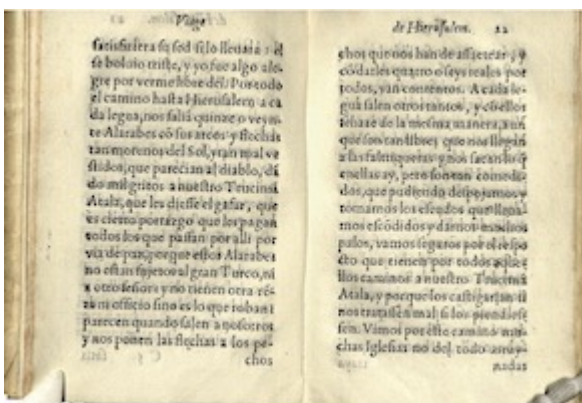 Viage
satisfiziera su sed si lo lleuara: el
se boluio triste, y yo fue algo ale-
gre por verme libre del. Por todo
el camino hasta Hierusalem a ca
da legua, nos saliã quinze o veyn-
te Alarabes cõ sus arcos y flechas
tan morenos del Sol, y tan mal ve
stidos, que parecian al diablo, dã
do mil gritos a nuestro Trucimã
Atala, que les diesse el gafar, que
es cierto portazgo que los pagan
todos los que passan por alli por
via de paz, porque estos Alarabes
no estan sujetos al gran Turco, ni
a otro señor y no tienen otra rē-
ta ni officio sino es lo que roban:
parecen quando salen a nosotros
y nos ponen las flechas a los pe-
chos
de Hierusalem. 22
chos que nos han de assaetear, y
cõ darles quatro o seys reales por
todos, van contentos. A cada le-
gua salen otros tantos, y cõ ellos
se haze de la mesma manera, aun
que son tan libres que nos llegan
a las faltriqueras y nos sacan lo q̃
en ellas ay, pero son tan comedi-
dos, que pudiendo despojarnos y
tomarnos los escudos que lleua-
mos escõdidos y darnos muchos
palos, vamos seguros por el respe
cto que tienen por todos aque-
llos caminos a nuestro Trucimã
Atala, y porque los castigarian si
nos tratassen mal, si los pidiesse
sen. Vimos por este camino mu-
chas Iglesias no del todo arruy-
nadas